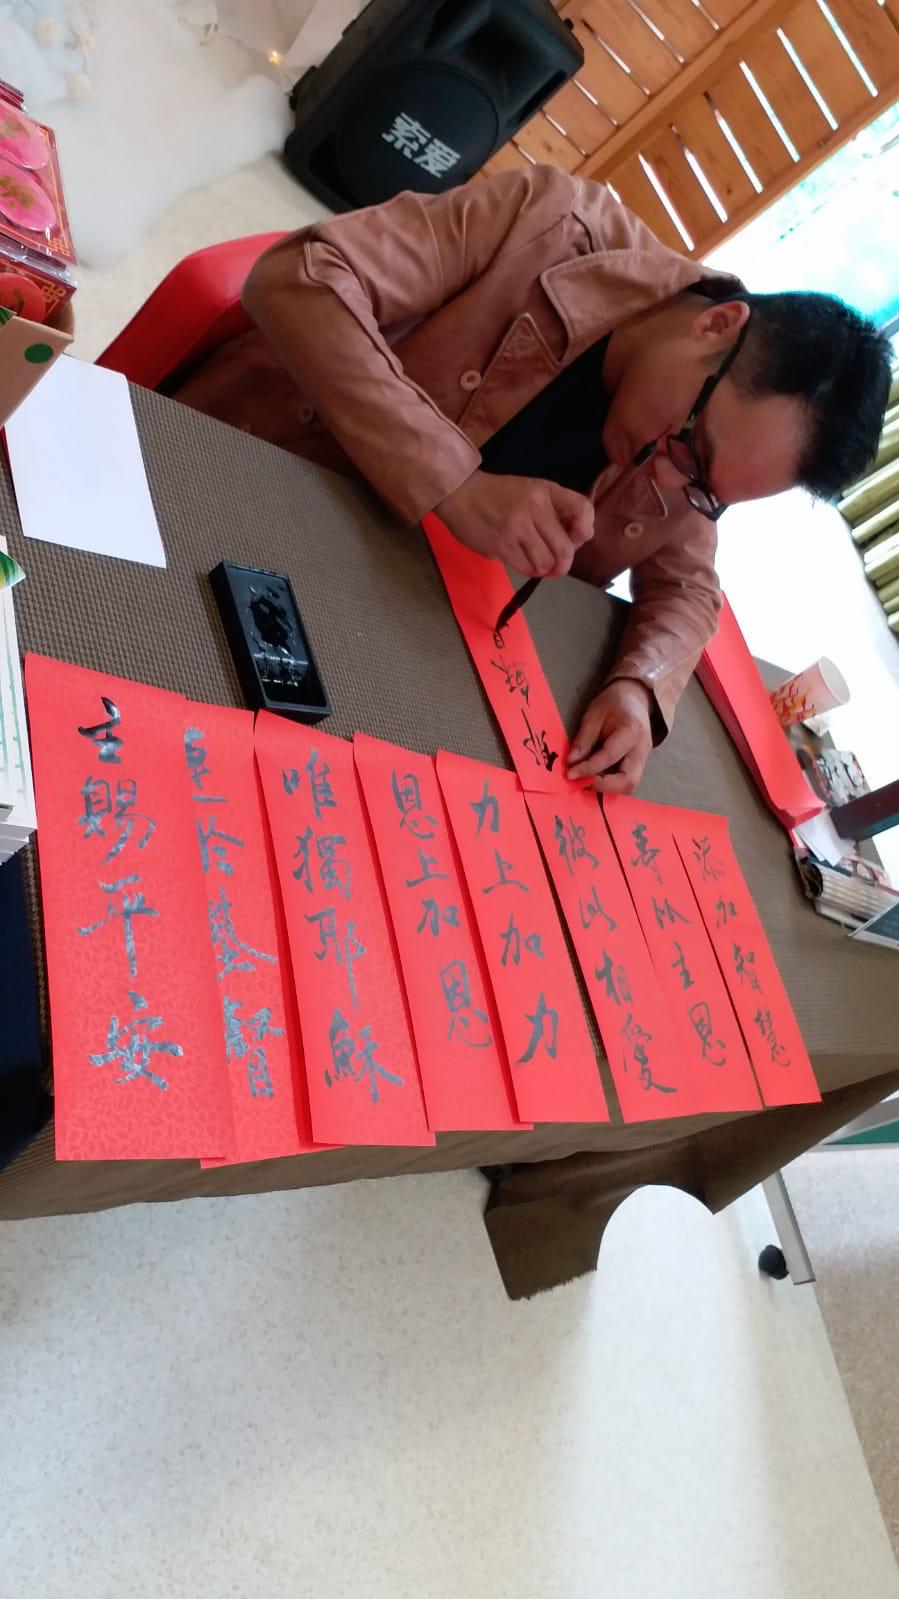 索爱
主賜平安
連於基督
唯獨耶穌
恩上加恩
力上加力
彼此相愛
以主恩
添加智慧
耶穌